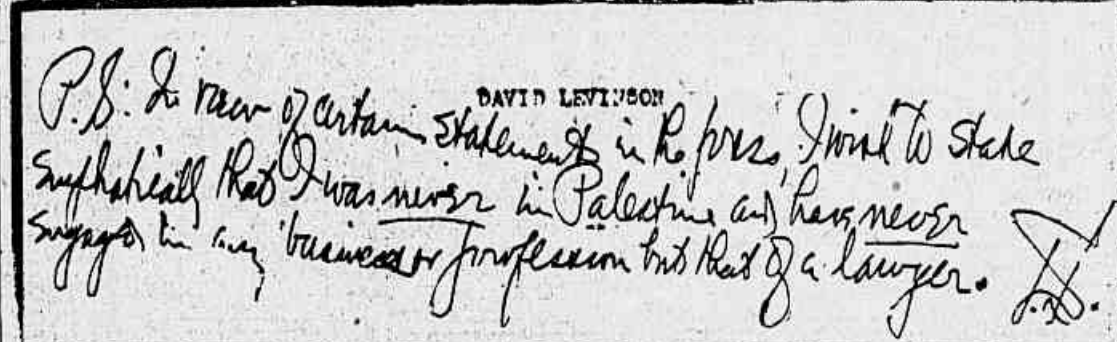 DAVID LEVINSON
P.S: In view of certain statements in the press, I wish to state
emphatically that I was never in Palestine and have never
engaged in any business or profession but that of a lawyer.